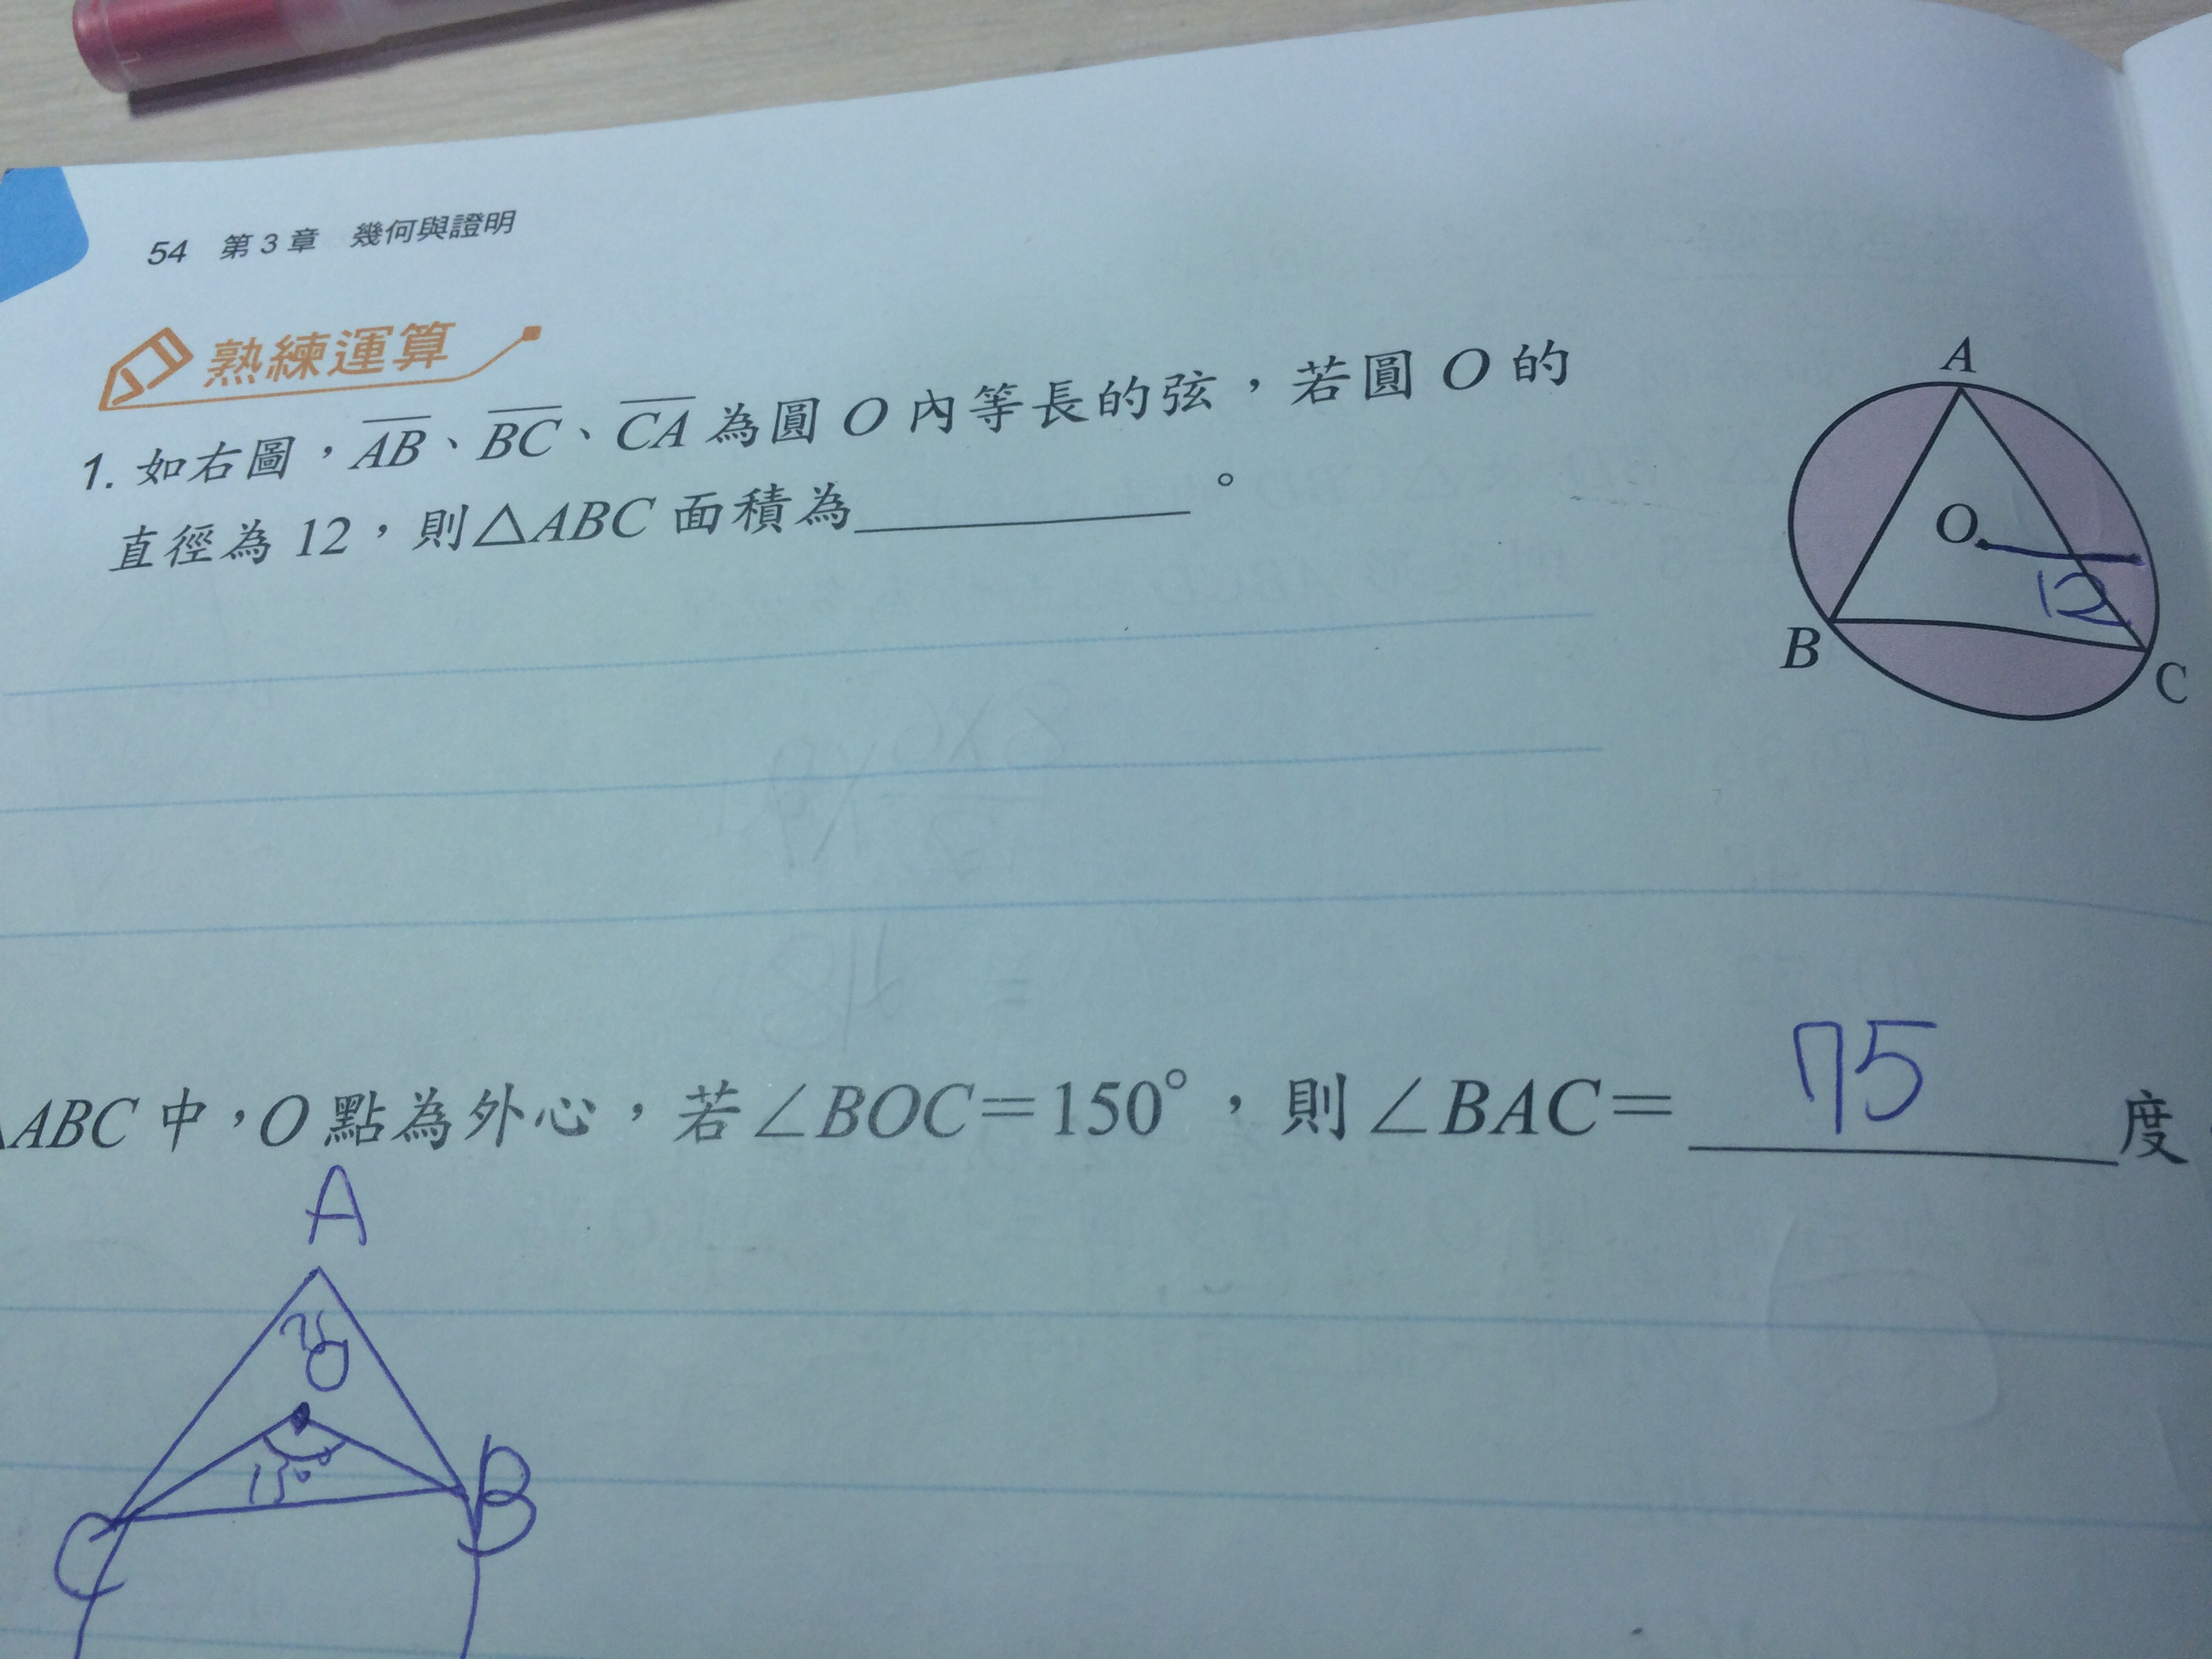 54 第3章 幾何與證明
熟練運算
1. 如右圖，AB、BC、CA 為圓 O 內等長的弦，若圓 O 的
直徑為 12，則△ABC 面積為 。
A
O
12
B
C
ABC 中，O 點為外心，若∠BOC＝150°，則∠BAC＝ 75 度
A
C
B